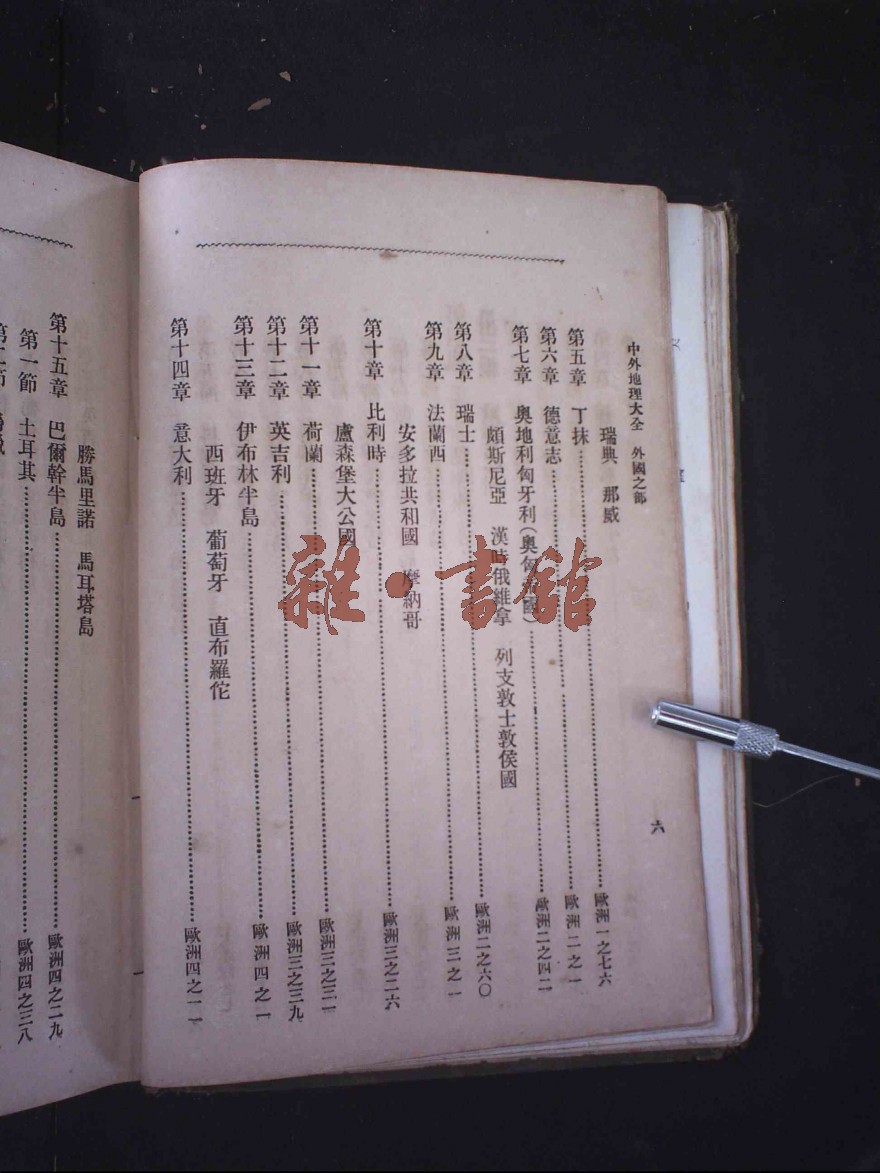 中外地理大全　外國之部
六
瑞典　那威
第五章　丁抹……歐洲一之七六
第六章　德意志……歐洲二之一
第七章　奧地利匈牙利(奧匈帝國)……歐洲二之四二
頗斯尼亞　漢時俄維拿　列支敦士敦侯國
第八章　瑞士……歐洲二之六〇
第九章　法蘭西……歐洲三之一
安多拉共和國　摩納哥
第十章　比利時……歐洲三之二六
盧森堡大公國
第十一章　荷蘭……歐洲三之三一
第十二章　英吉利……歐洲三之三九
第十三章　伊布林半島……歐洲四之一
西班牙　葡萄牙　直布羅佗
第十四章　意大利……歐洲四之一一
勝馬里諾　馬耳塔島
第十五章　巴爾幹半島……歐洲四之二九
第一節　土耳其……歐洲四之三八
雜·書館